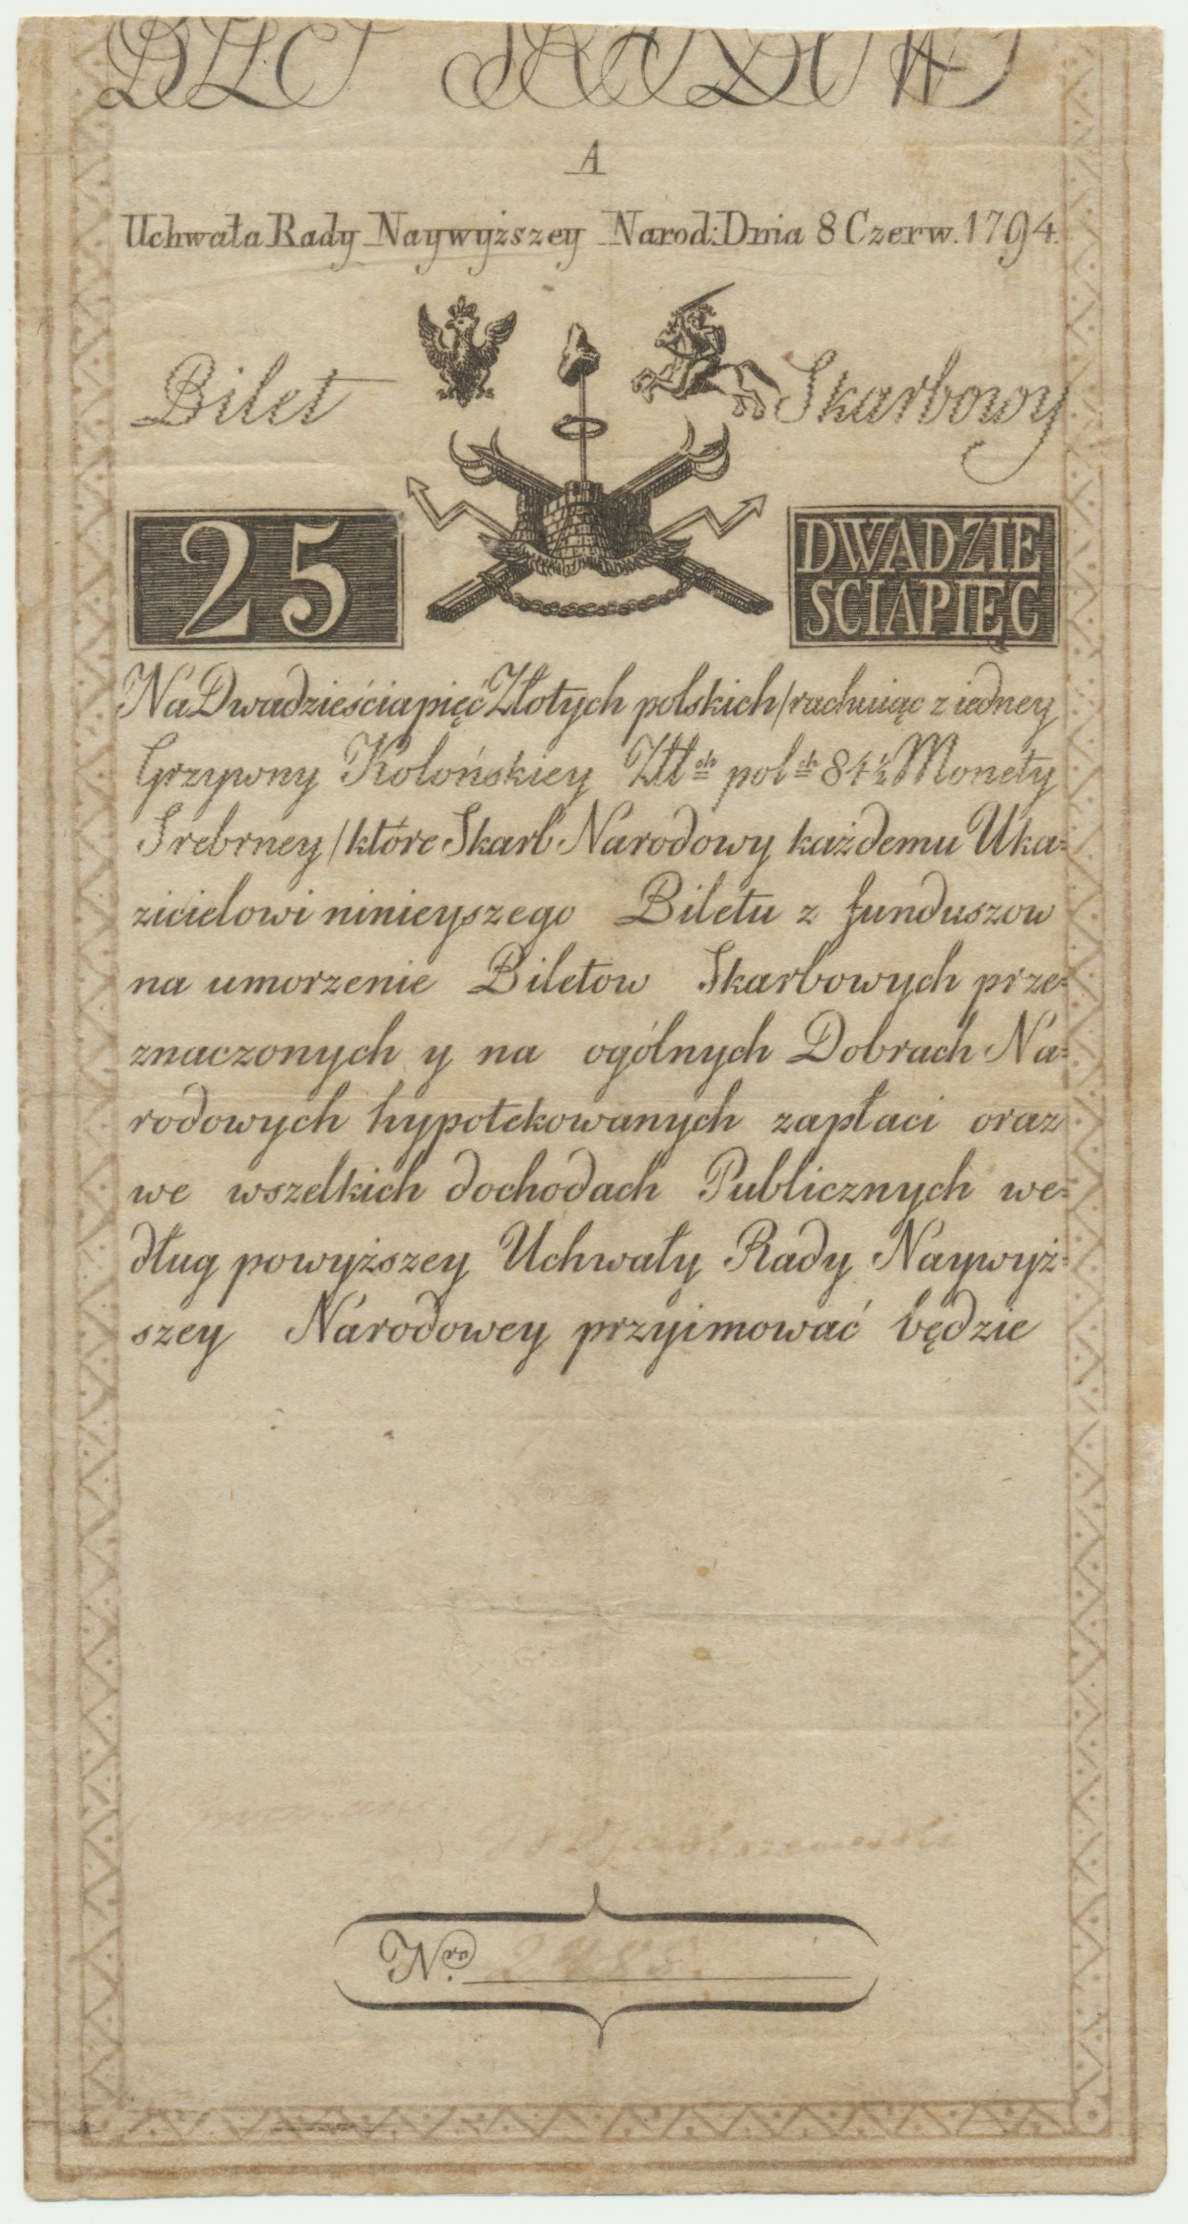 A
Uchwała Rady Naywyższey Narod: Dnia 8 Czerw. 1794.
Bilet Skarbowy
25
DWADZIE
SCIAPIĘC
Na Dwadzieścia pięć Złotych polskich /rachuiąc z iedney
Grzywny Kolońskiey Złł^ch pol^ch 84½ Monety
Srebrney/ które Skarb Narodowy każdemu Uka=
zicielowi ninieyszego Biletu z funduszow
na umorzenie Biletow Skarbowych prze=
znaczonych y na ogólnych Dobrach Na=
rodowych hypotekowanych zapłaci oraz
we wszelkich dochodach Publicznych we=
dług powyższey Uchwały Rady Naywyż=
szey Narodowey przyimować będzie
N^ro.